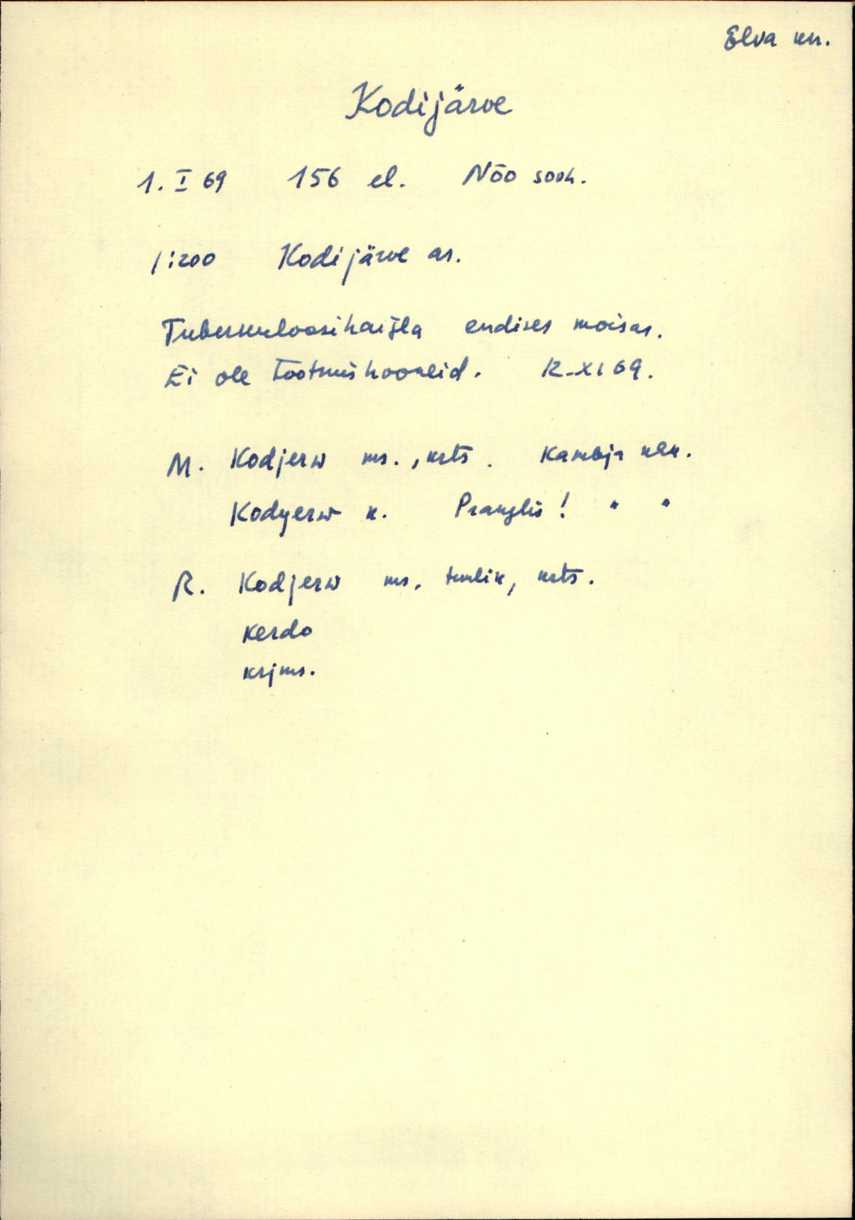 Elva kn.
Kodijärve
1. I 69 156 el. Nõo sovh.
1:200 Kodijärve as.
Tuberkuloosihaigla endises mõisas.
Ei ole tootmishooneid. 12-XI 69.
M. Kodjerw ms., krts. Kambja khk.
Kodyerw k. Pranglis! " "
R. Kodjerw ms, krts.
Kerdo
krjms.